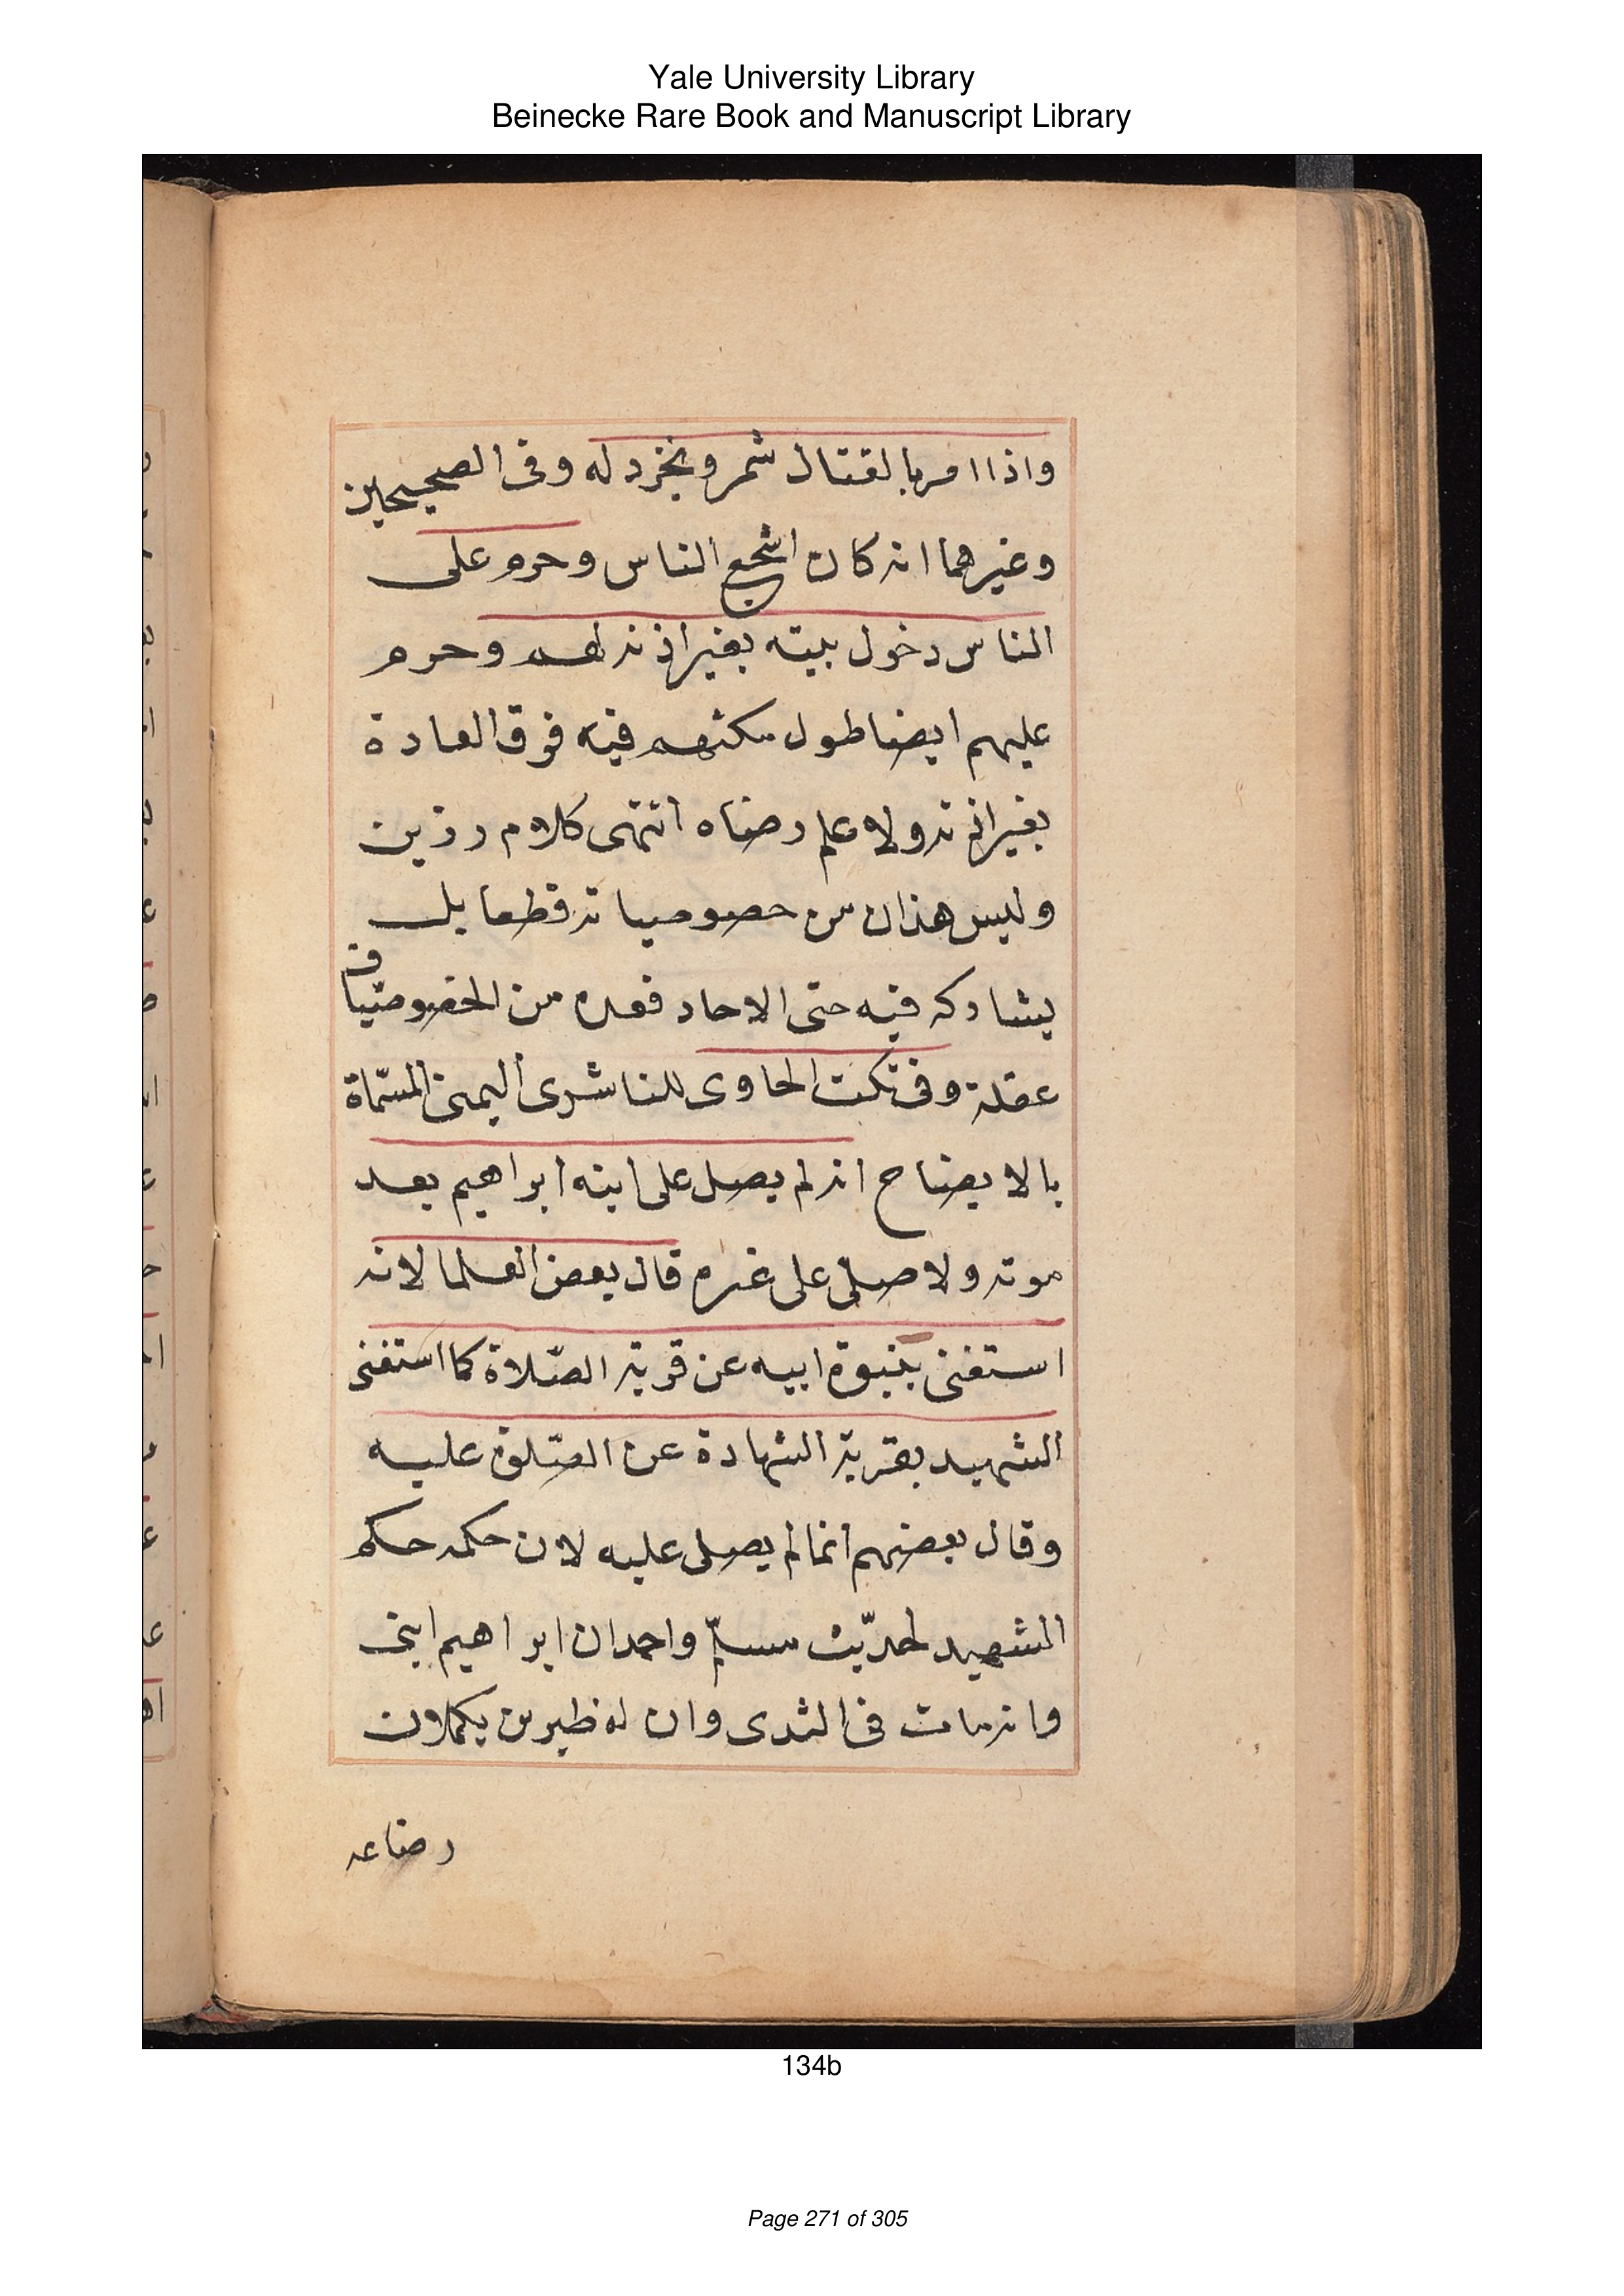 Yale University Library
Beinecke Rare Book and Manuscript Library
واذا امر بالقتال شمر وتجرد له وفي الصحيحين
وغيرهما انه كان اشجع الناس وحرم على
الناس دخول بيته بغير اذنه لهم وحرم
عليهم ايضا طول مكثهم فيه فوق العادة
بغير اذنه ولا علم رضاه انتهى كلام رزين
وليس هذان من خصوصياته قطعا بل
يشاركه فيه حتى الاحاد فعده من الخصوصيات
غفلة وفي نكت الحاوى للناشرى اليمنى المسمّاة
بالايضاح انه لم يصل على ابنه ابراهيم بعد
موته ولا صلى على غيره قال بعض العلما لانه
استغنى بنبوة ابيه عن قربة الصّلاة كما استغنى
الشهيد بقربة الشهادة عن الصّلوة عليه
وقال بعضهم انما لم يصلى عليه لان حكمه حكم
الشهيد لحديث مسلم واحمد ان ابراهيم ابنى
وانه مات في الثدى وان له ظيرين يكملان
رضاعه
134b
Page 271 of 305